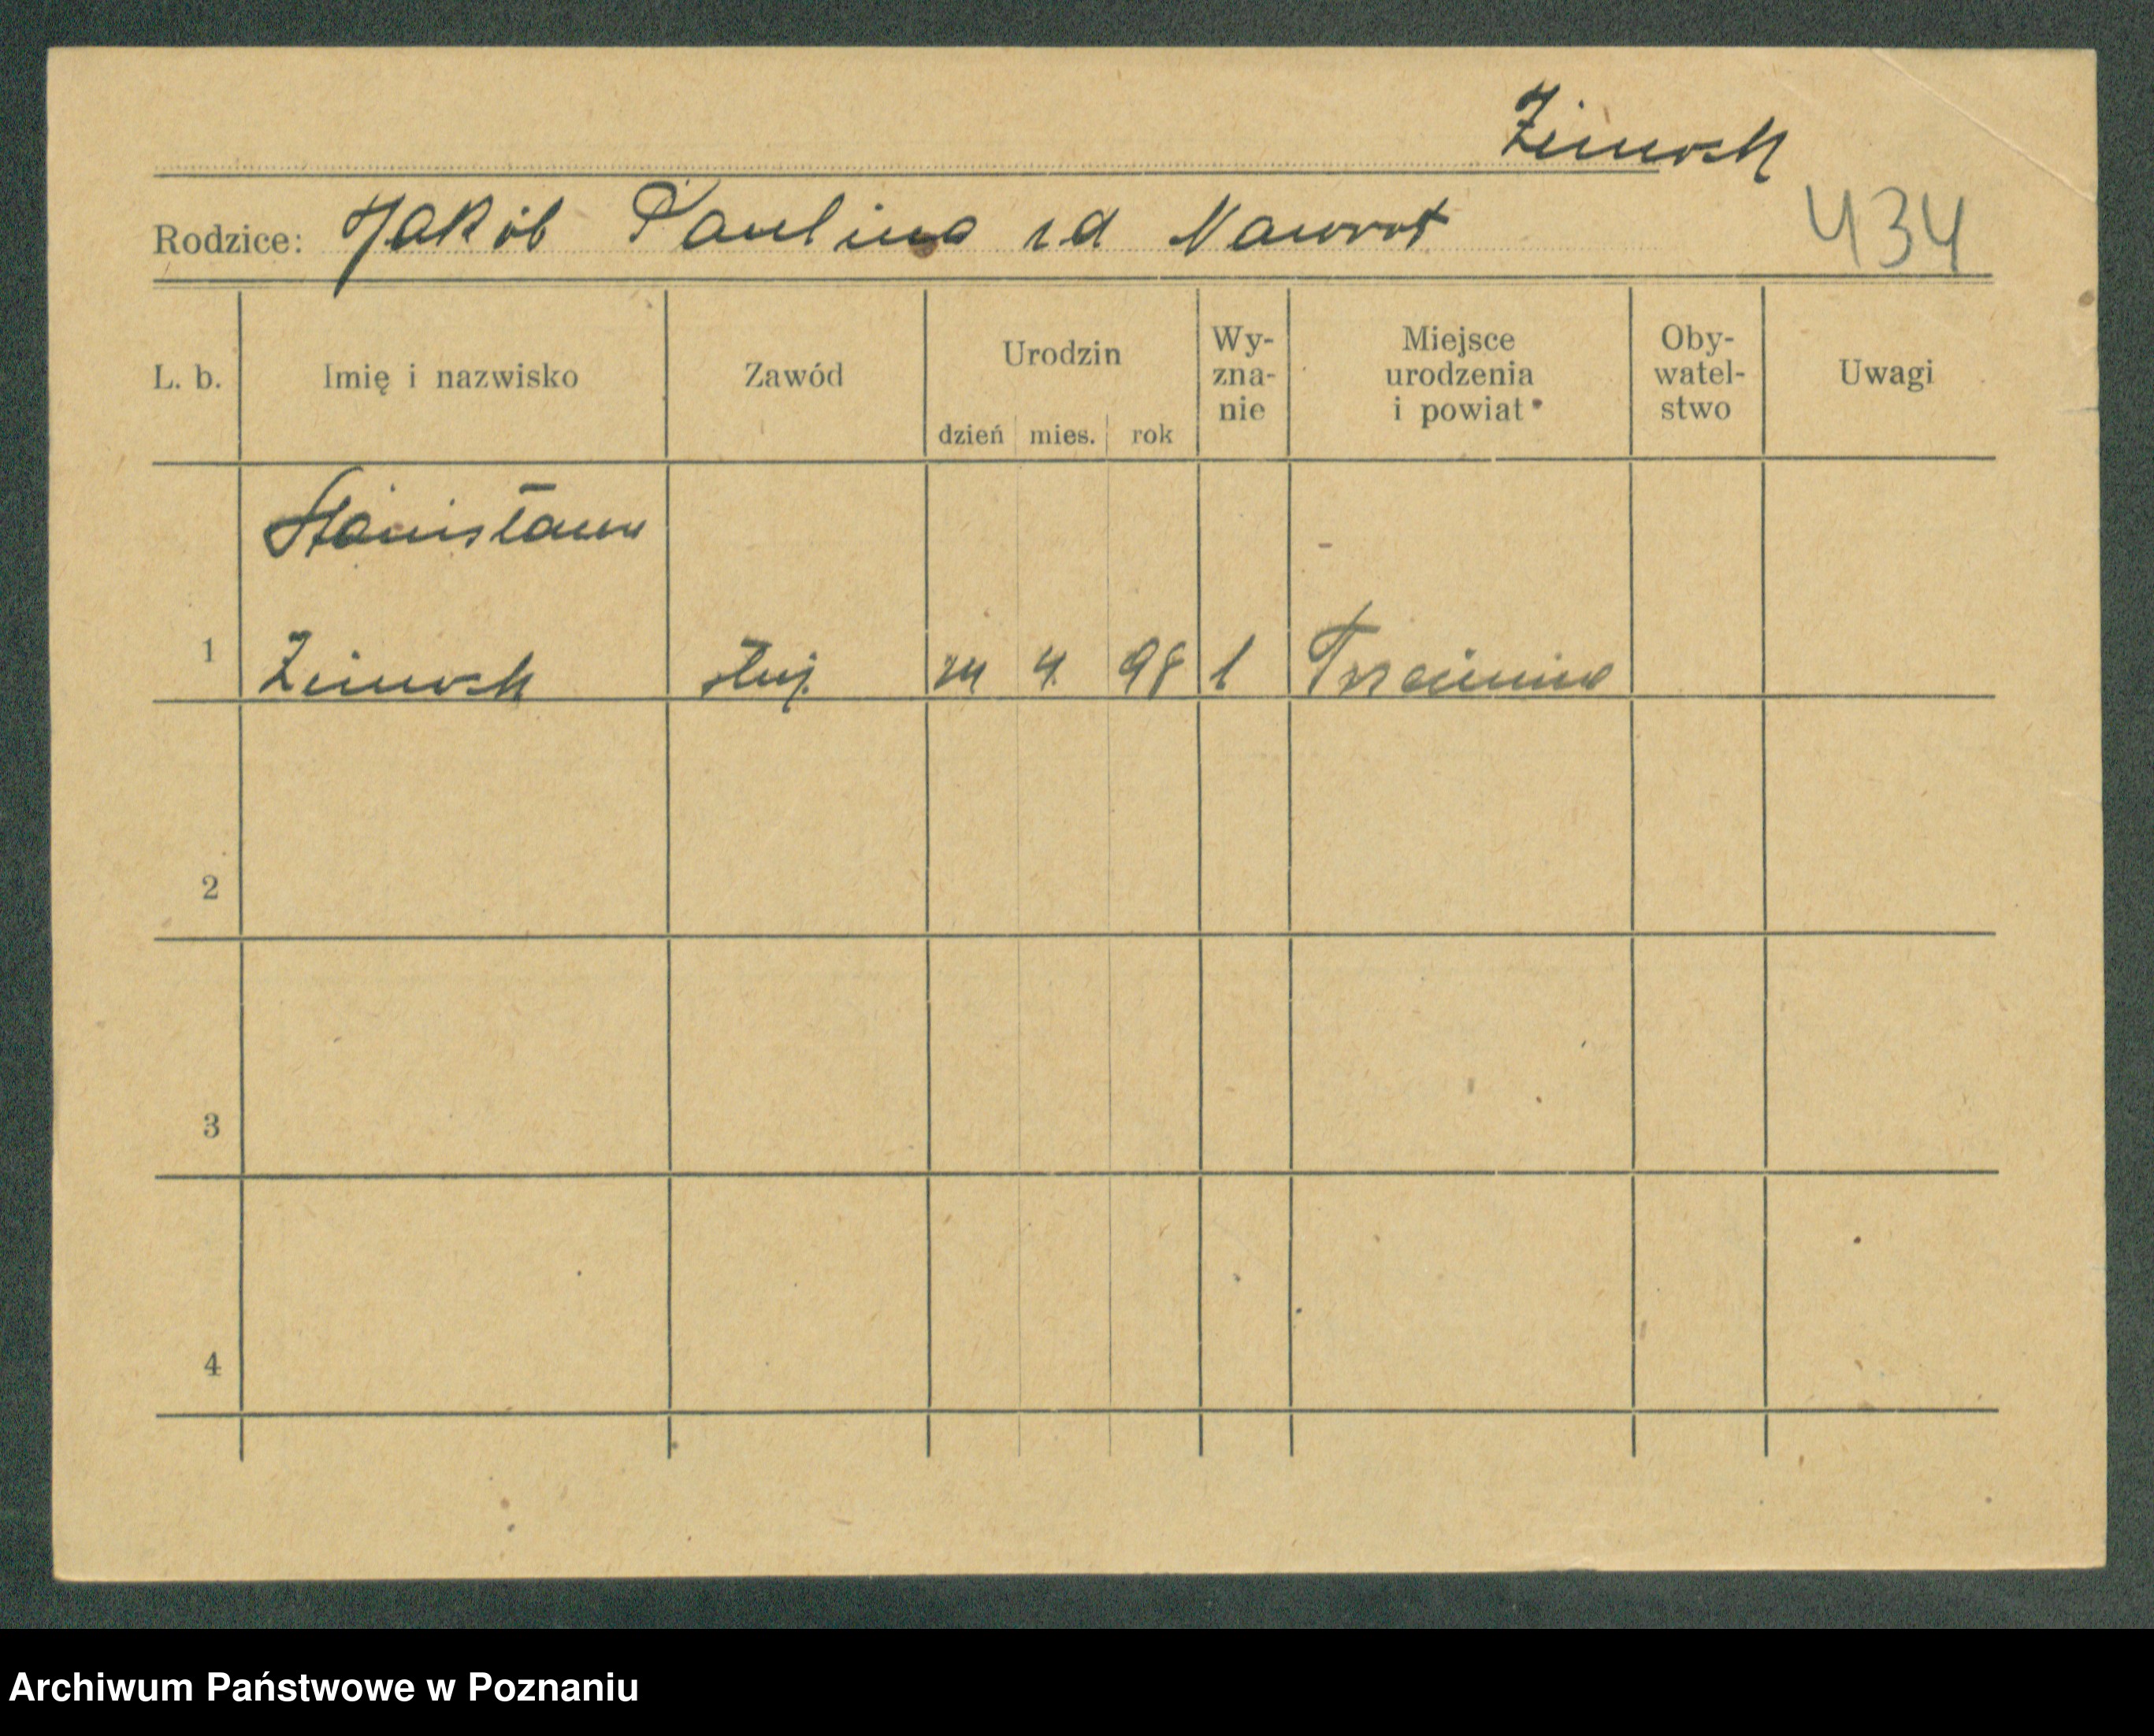 Zimoch
Rodzice: Jakób Paulina z d Nawrot 434
L. b. Imię i nazwisko Zawód Urodzin dzień mies. rok Wy-zna-nie Miejsce urodzenia i powiat Oby-watel-stwo Uwagi
Stanisława
1 Zimoch słuj. 4. 98
2
3
4
Archiwum Państwowe w Poznaniu